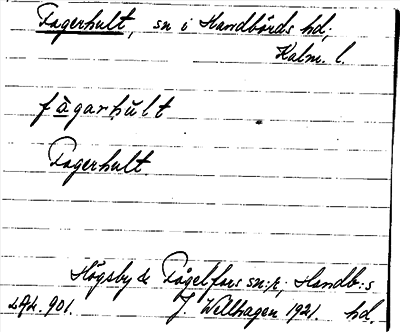 Fagerhult, sn i Handbörds hd,
Kalm. l.
fàgarhult
Fagerhult
Högsby & Fågelfors sn:r, Handb:s
901. J. Wellhagen 1921. hd.